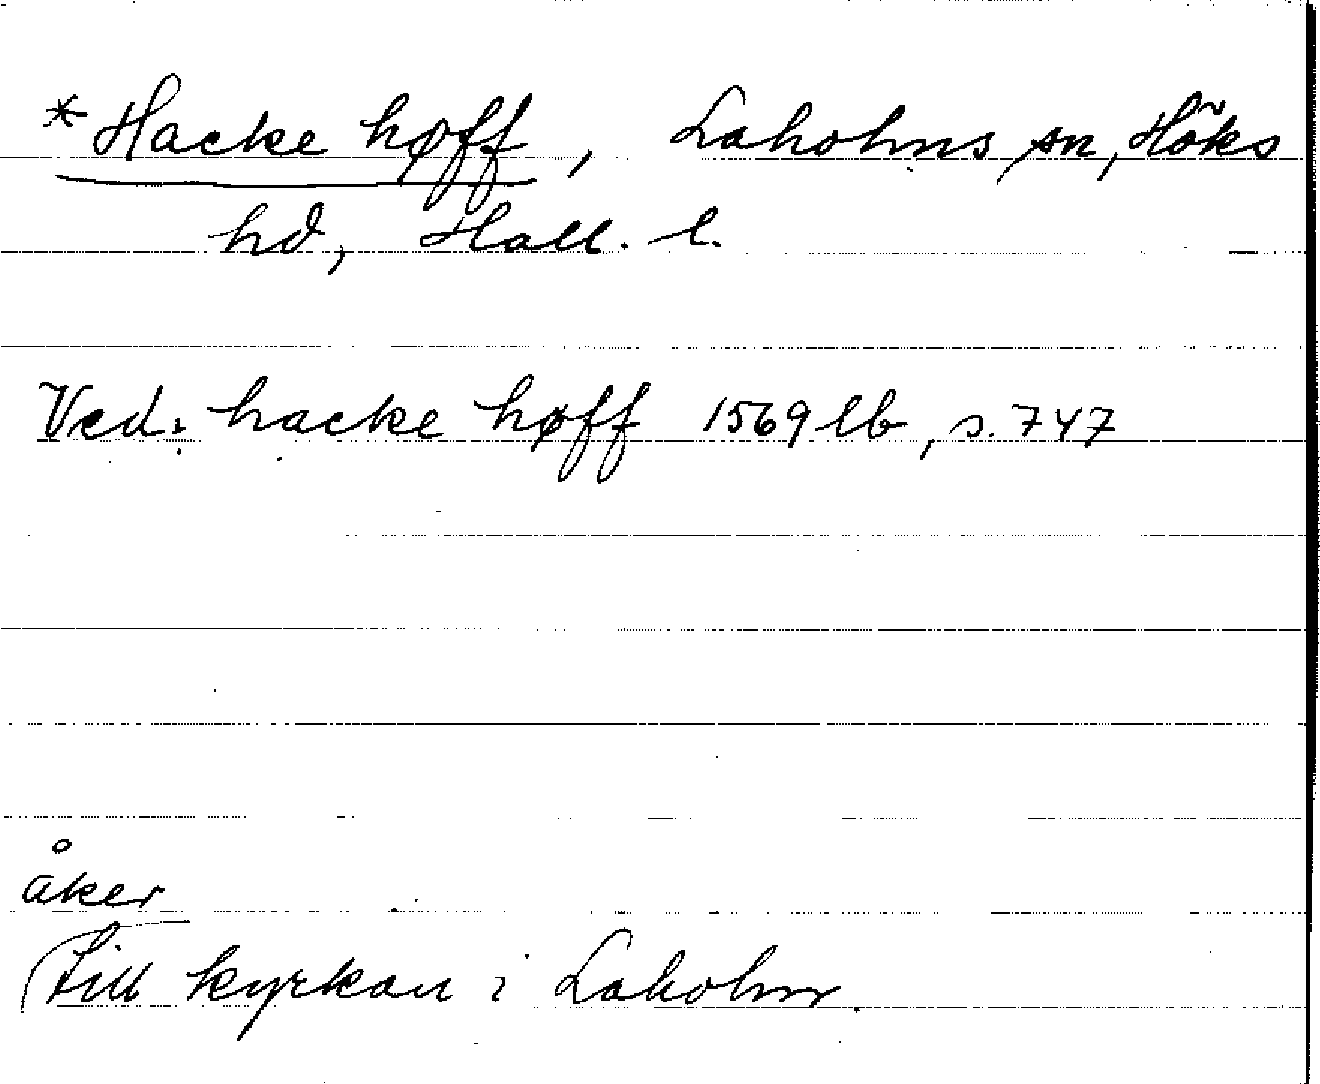 *Hacke høff, Laholms sn, Höks
hd, Hall. l.
Ved: hacke høff 1569 lb, s. 747
åker
Till kyrkan i Laholm.